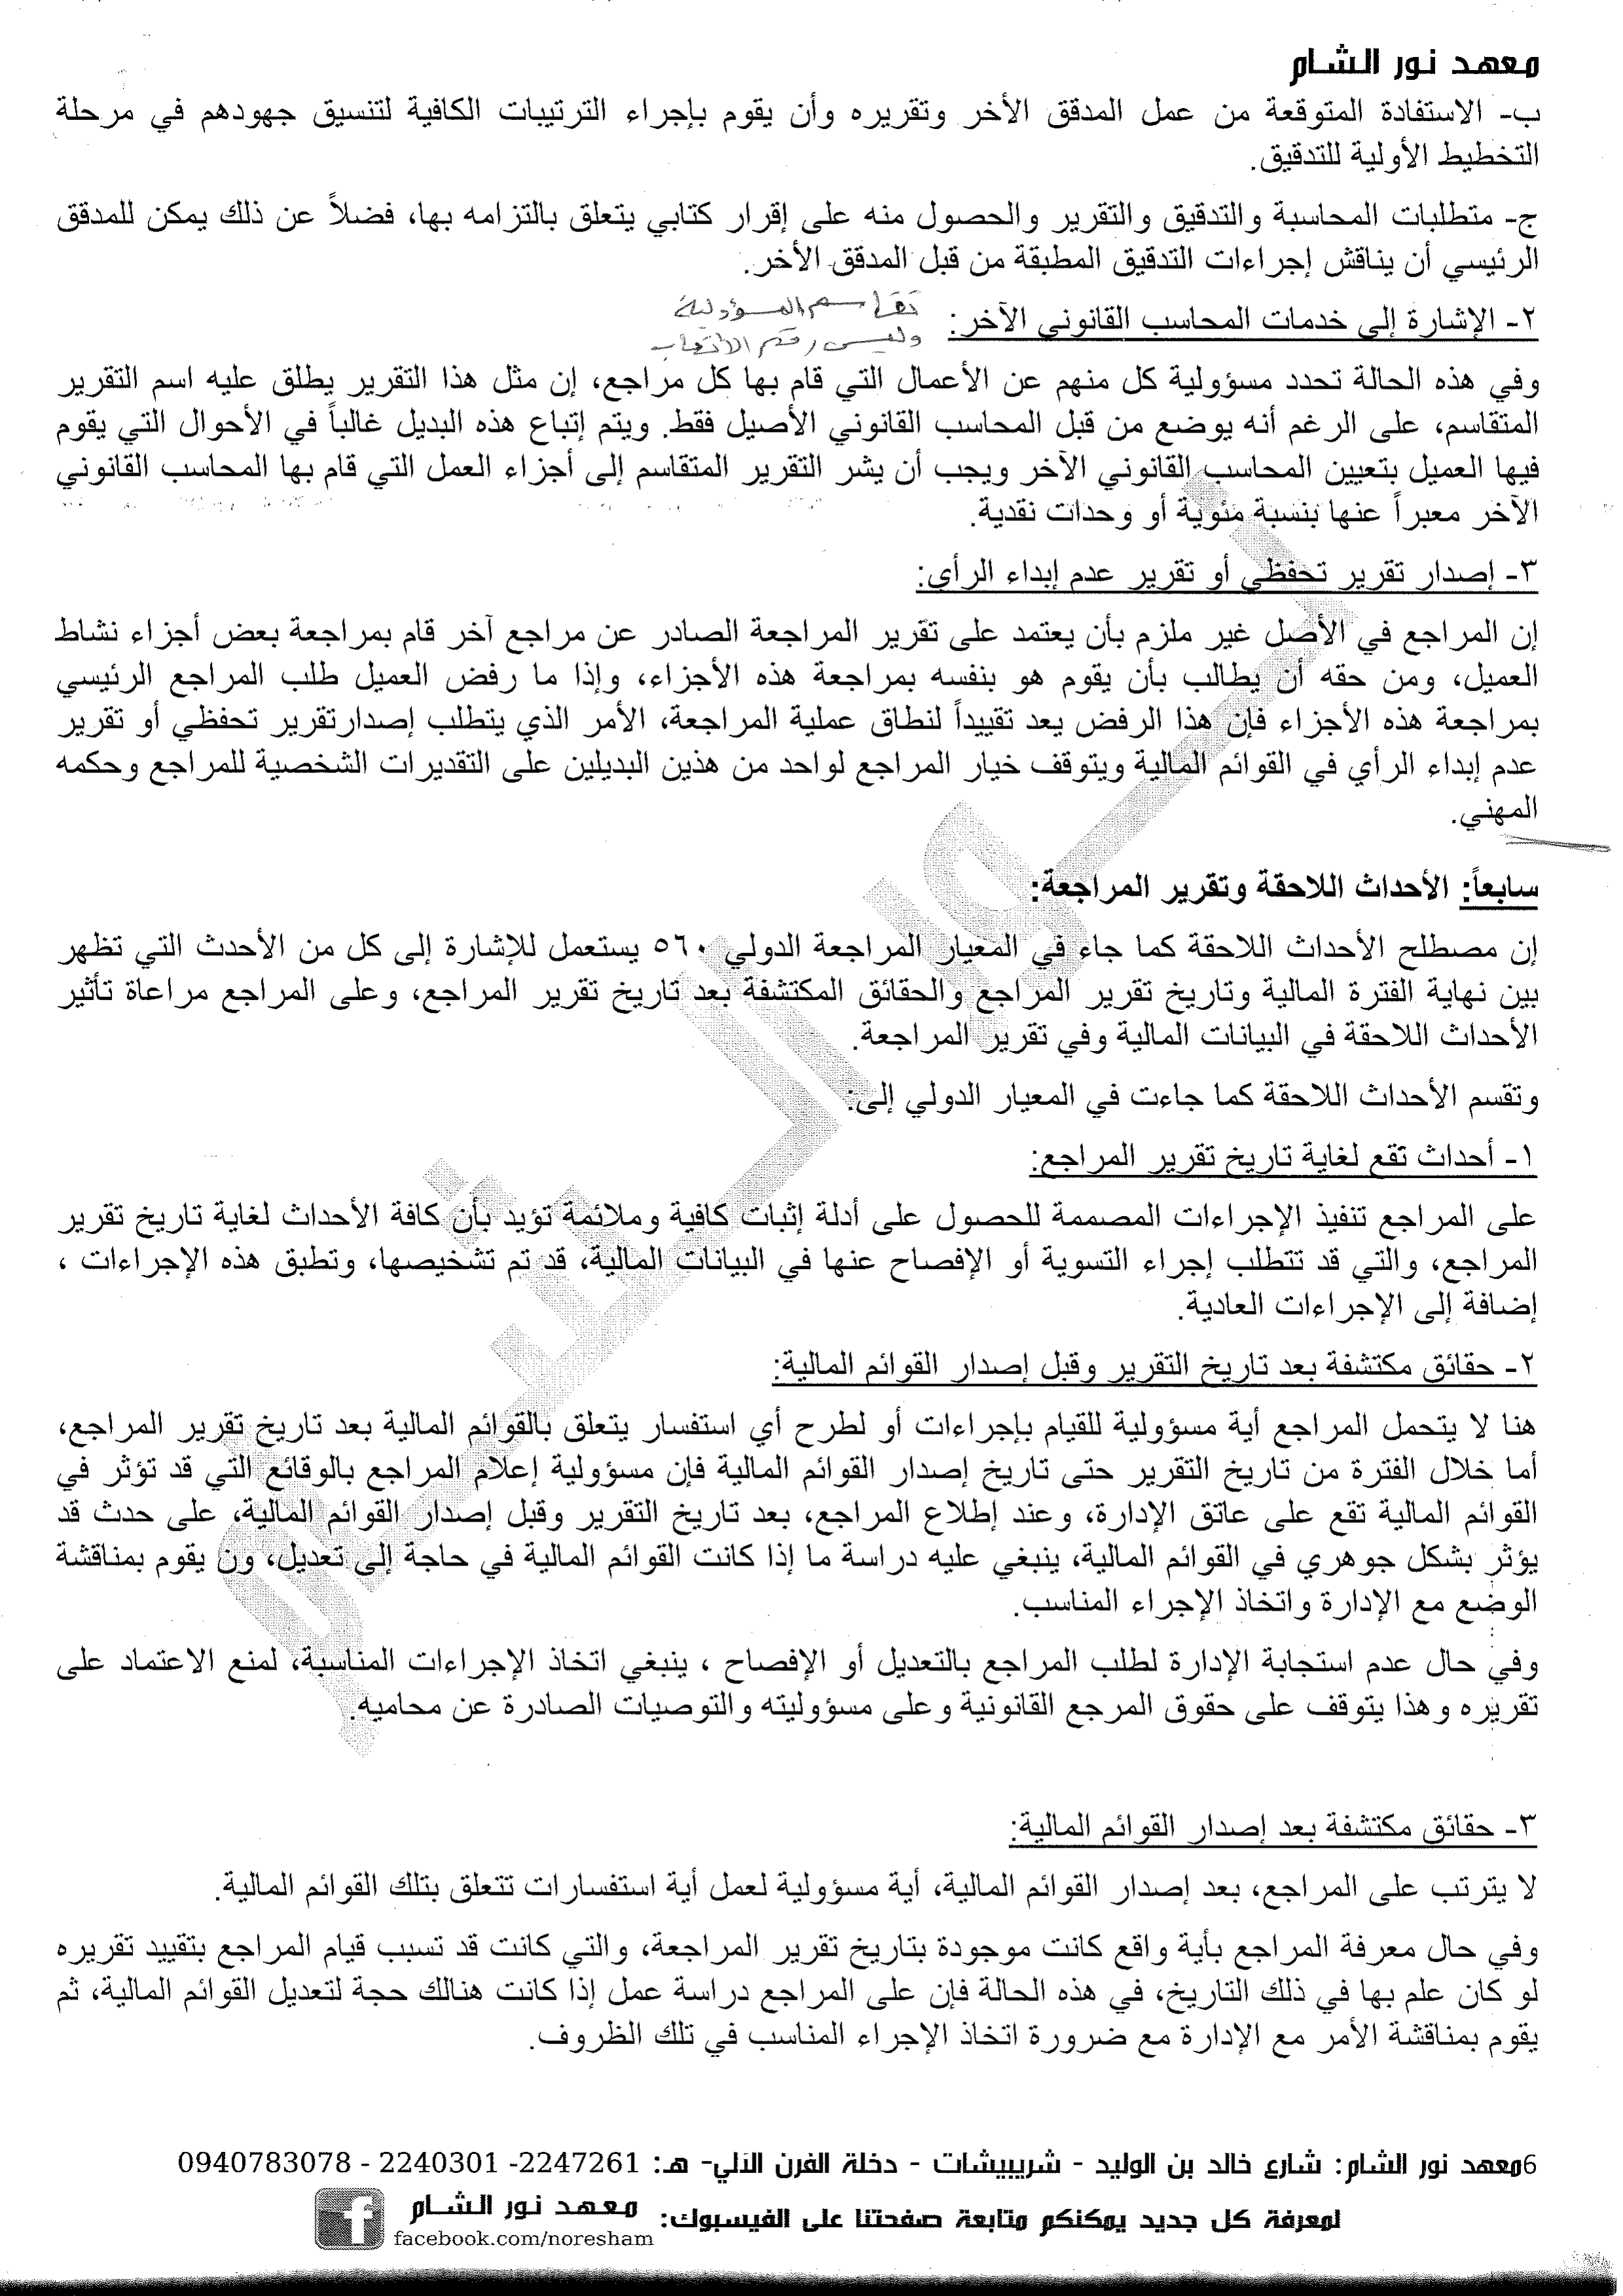 معهد نور الشام
ب- الاستفادة المتوقعة من عمل المدقق الأخر وتقريره وأن يقوم بإجراء الترتيبات الكافية لتنسيق جهودهم في مرحلة
التخطيط الأولية للتدقيق.
ج- متطلبات المحاسبة والتدقيق والتقرير والحصول منه على إقرار كتابي يتعلق بالتزامه بها، فضلاً عن ذلك يمكن للمدقق
الرئيسي أن يناقش إجراءات التدقيق المطبقة من قبل المدقق الأخر.
٢- الإشارة إلى خدمات المحاسب القانوني الآخر: تقاسم المسؤولية
وليس رقم الأتعاب
وفي هذه الحالة تحدد مسؤولية كل منهم عن الأعمال التي قام بها كل مراجع، إن مثل هذا التقرير يطلق عليه اسم التقرير
المتقاسم، على الرغم أنه يوضع من قبل المحاسب القانوني الأصيل فقط. ويتم إتباع هذه البديل غالباً في الأحوال التي يقوم
فيها العميل بتعيين المحاسب القانوني الآخر ويجب أن يشر التقرير المتقاسم إلى أجزاء العمل التي قام بها المحاسب القانوني
الآخر معبراً عنها بنسبة مئوية أو وحدات نقدية.
٣- إصدار تقرير تحفظي أو تقرير عدم إبداء الرأي:
إن المراجع في الأصل غير ملزم بأن يعتمد على تقرير المراجعة الصادر عن مراجع آخر قام بمراجعة بعض أجزاء نشاط
العميل، ومن حقه أن يطالب بأن يقوم هو بنفسه بمراجعة هذه الأجزاء، وإذا ما رفض العميل طلب المراجع الرئيسي
بمراجعة هذه الأجزاء فإن هذا الرفض يعد تقييداً لنطاق عملية المراجعة، الأمر الذي يتطلب إصدارتقرير تحفظي أو تقرير
عدم إبداء الرأي في القوائم المالية ويتوقف خيار المراجع لواحد من هذين البديلين على التقديرات الشخصية للمراجع وحكمه
المهني.
سابعاً: الأحداث اللاحقة وتقرير المراجعة:
إن مصطلح الأحداث اللاحقة كما جاء في المعيار المراجعة الدولي ٥٦٠ يستعمل للإشارة إلى كل من الأحدث التي تظهر
بين نهاية الفترة المالية وتاريخ تقرير المراجع والحقائق المكتشفة بعد تاريخ تقرير المراجع، وعلى المراجع مراعاة تأثير
الأحداث اللاحقة في البيانات المالية وفي تقرير المراجعة.
وتقسم الأحداث اللاحقة كما جاءت في المعيار الدولي إلى:
١- أحداث تقع لغاية تاريخ تقرير المراجع:
على المراجع تنفيذ الإجراءات المصممة للحصول على أدلة إثبات كافية وملائمة تؤيد بأن كافة الأحداث لغاية تاريخ تقرير
المراجع، والتي قد تتطلب إجراء التسوية أو الإفصاح عنها في البيانات المالية، قد تم تشخيصها، وتطبق هذه الإجراءات ،
إضافة إلى الإجراءات العادية.
٢- حقائق مكتشفة بعد تاريخ التقرير وقبل إصدار القوائم المالية:
هنا لا يتحمل المراجع أية مسؤولية للقيام بإجراءات أو لطرح أي استفسار يتعلق بالقوائم المالية بعد تاريخ تقرير المراجع،
أما خلال الفترة من تاريخ التقرير حتى تاريخ إصدار القوائم المالية فإن مسؤولية إعلام المراجع بالوقائع التي قد تؤثر في
القوائم المالية تقع على عاتق الإدارة، وعند إطلاع المراجع، بعد تاريخ التقرير وقبل إصدار القوائم المالية، على حدث قد
يؤثر بشكل جوهري في القوائم المالية، ينبغي عليه دراسة ما إذا كانت القوائم المالية في حاجة إلى تعديل، ون يقوم بمناقشة
الوضع مع الإدارة واتخاذ الإجراء المناسب.
وفي حال عدم استجابة الإدارة لطلب المراجع بالتعديل أو الإفصاح ، ينبغي اتخاذ الإجراءات المناسبة، لمنع الاعتماد على
تقريره وهذا يتوقف على حقوق المرجع القانونية وعلى مسؤوليته والتوصيات الصادرة عن محاميه.
٣- حقائق مكتشفة بعد إصدار القوائم المالية:
لا يترتب على المراجع، بعد إصدار القوائم المالية، أية مسؤولية لعمل أية استفسارات تتعلق بتلك القوائم المالية.
وفي حال معرفة المراجع بأية واقع كانت موجودة بتاريخ تقرير المراجعة، والتي كانت قد تسبب قيام المراجع بتقييد تقريره
لو كان علم بها في ذلك التاريخ، في هذه الحالة فإن على المراجع دراسة عمل إذا كانت هنالك حجة لتعديل القوائم المالية، ثم
يقوم بمناقشة الأمر مع الإدارة مع ضرورة اتخاذ الإجراء المناسب في تلك الظروف.
6معهد نور الشام: شارع خالد بن الوليد - شريبيشات - دخلة الفرن الآلي- هـ: 2247261- 2240301 - 0940783078
لمعرفة كل جديد يمكنكم متابعة صفحتنا على الفيسبوك: معهد نور الشام
facebook.com/noresham